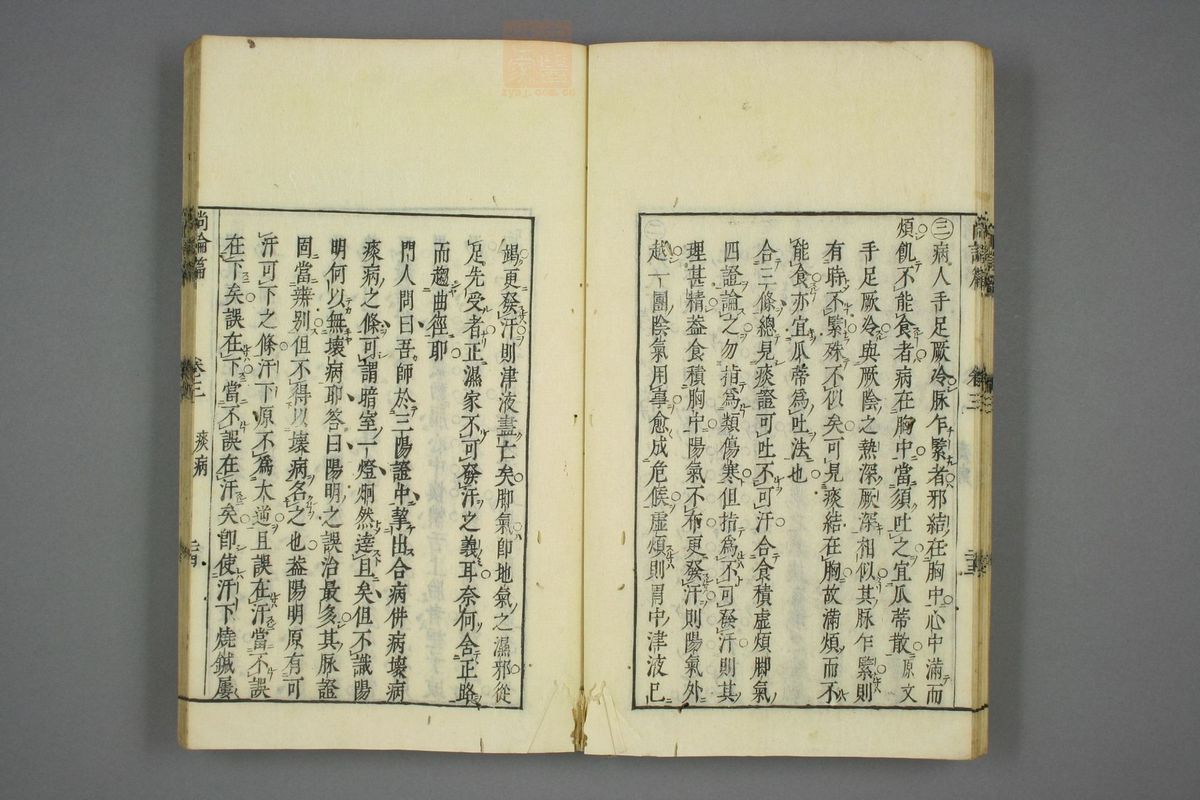 ㊂病人手足厥冷脉乍緊者邪結在胸中心中滿而
煩飢不能食者病在胸中當須吐之宜瓜蒂散原文
手足厥冷與厥陰之熱深厥深相似其脉乍緊則
有時不緊殊不似矣可見痰結在胸故滿煩而不
能食亦宜瓜蒂為吐法也
合三條總見痰證可吐不可汗合食積虛煩脚氣
四證論之勿指為類傷寒但指為不可發汗則其
理甚精葢食積胸中陽氣不布更發汗則陽氣外
越一團陰氣用事愈成危候虛煩則胃中津液已
竭更發汗則津液盡亡矣脚氣卽地氣之濕邪從
足先受者正濕家不可發汗之義耳奈何舍正路
而趨曲徑耶
門人問曰吾師於三陽證中摯出合病併病壞病
痰病之條可謂暗室一燈炯然達且矣但不識陽
明何以無壞病耶答曰陽明之誤治最多其脉證
固當辨別但不得以壞病名之也葢陽明原有可
汗可下之條汗下原不為大逆且誤在汗當不誤
在下矣誤在下當不誤在汗矣卽使汗下燒鍼屢
尚論篇
卷三
痰病
二十四
zysj.com.cn